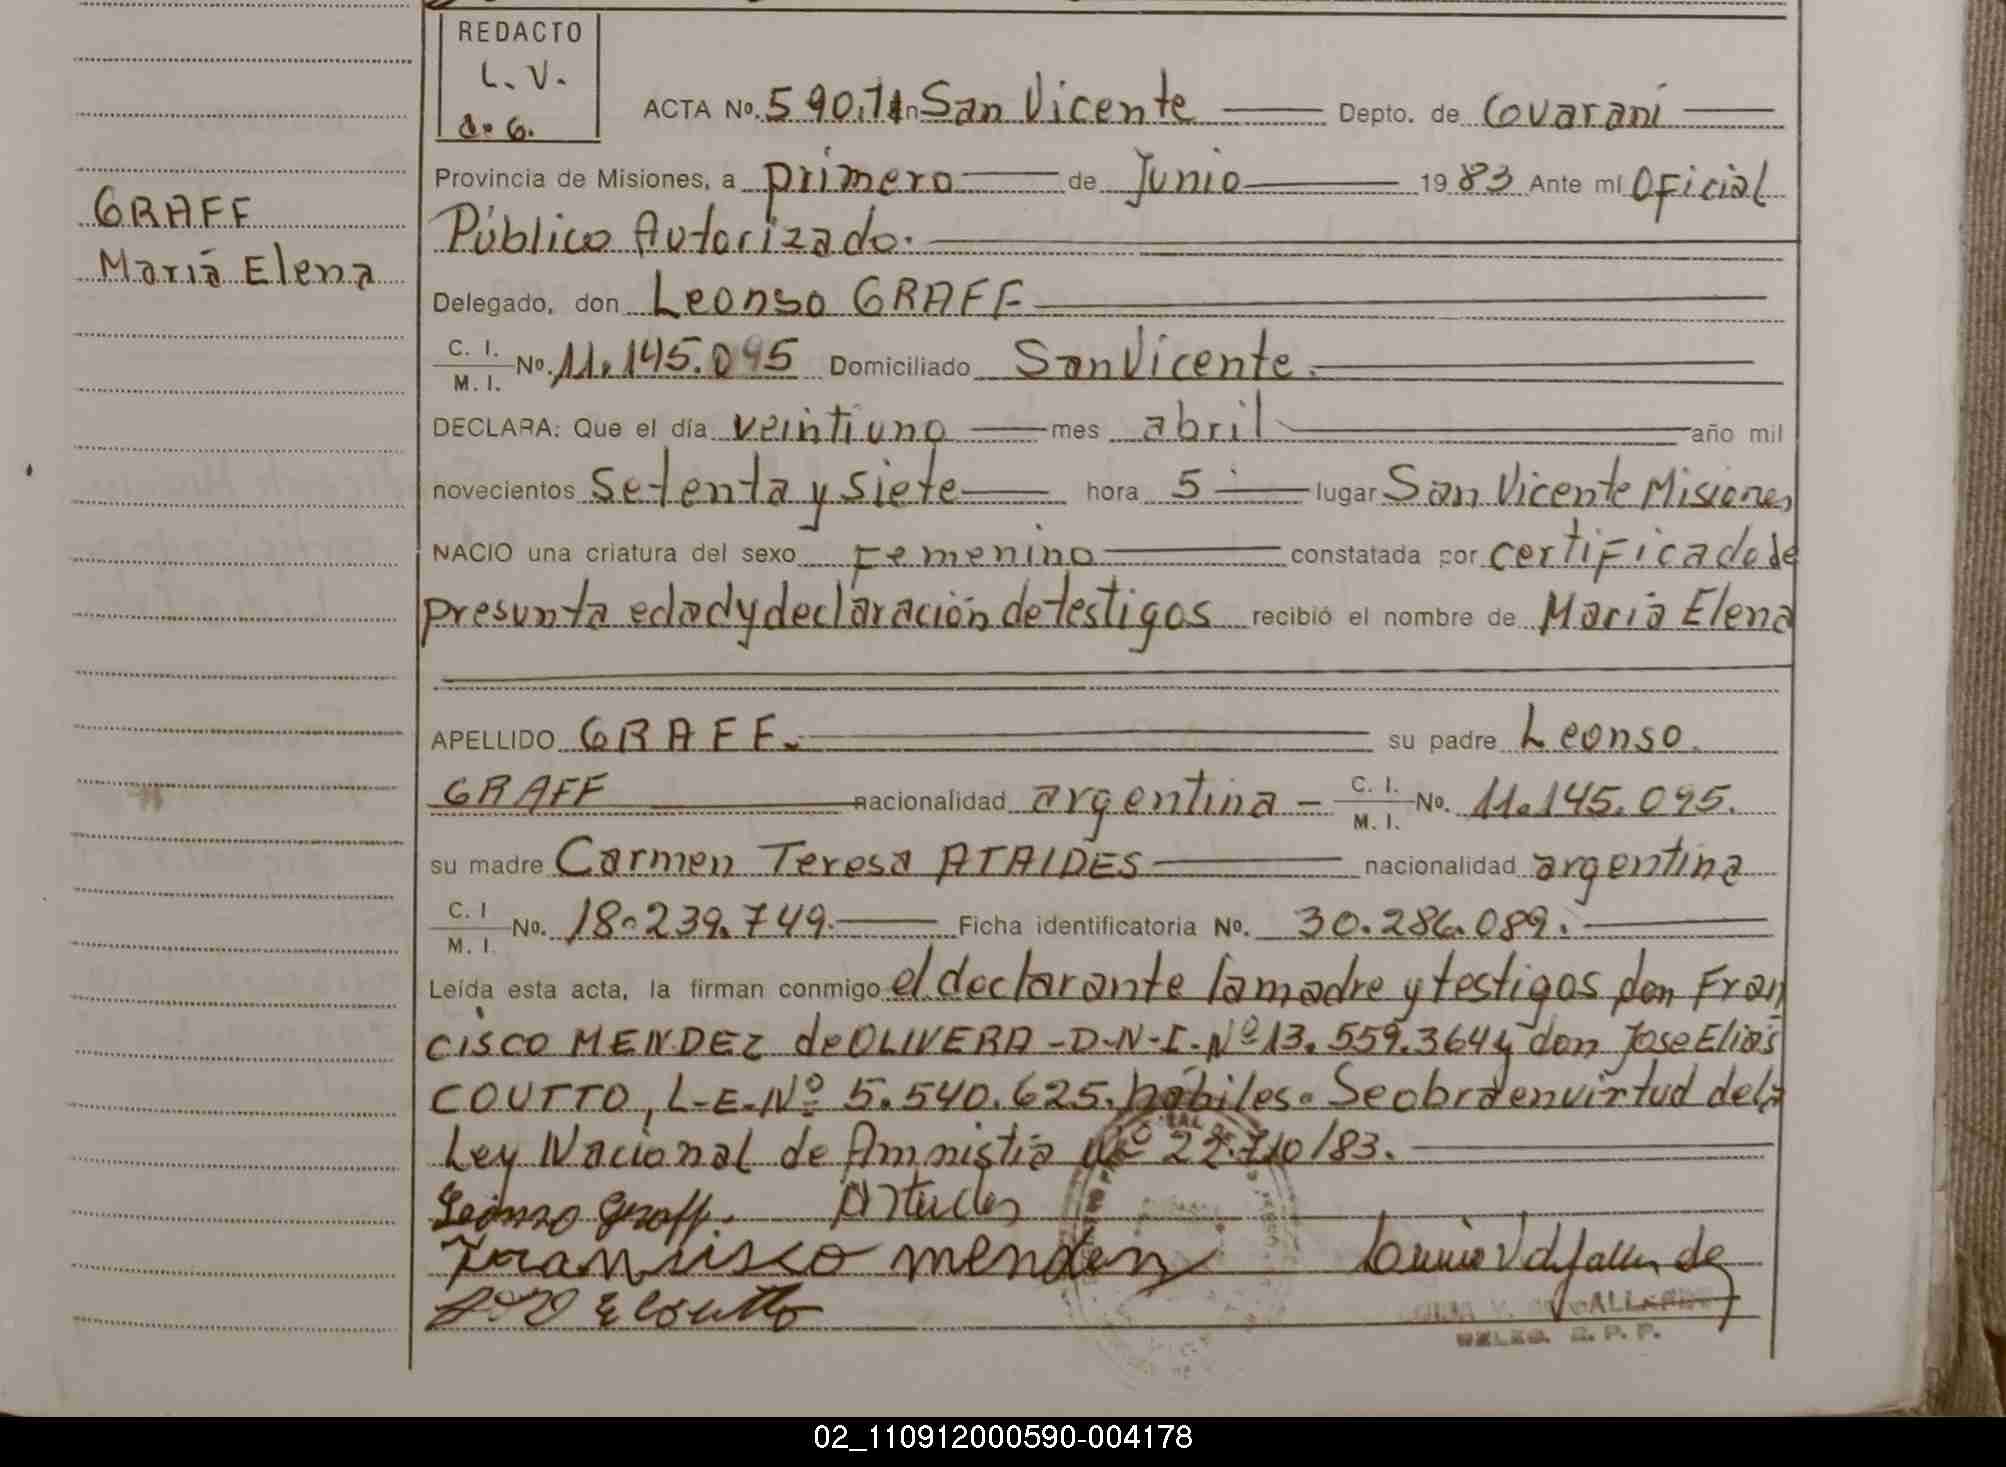 REDACTO
L. V.
d. G.
ACTA No. 590.T1 En San Vicente Depto. de Guarani
Provincia de Misiones, a primero de Junio 1983 Ante mí Oficial
GRAFF
Público Autorizado.
María Elena
Delegado, don Leonso GRAFF
C. I.
M. I. No. 11.145.095 Domiciliado San Vicente.
DECLARA: Que el día veintiuno mes abril año mil
novecientos Setenta y siete hora 5 lugar San Vicente Misiones
NACIO una criatura del sexo Femenino constatada por certificado de
presunta edad y declaración de testigos recibió el nombre de María Elena
APELLIDO GRAFF. su padre Leonso
GRAFF nacionalidad argentina - C. I.
M. I. No. 11.145.095.
su madre Carmen Teresa ATAIDES nacionalidad argentina
C. I
M. I. No. 18.239.749. Ficha identificatoria No. 30.286.089.
Leída esta acta, la firman conmigo el declarante la madre y testigos don Fran
cisco MENDEZ de OLIVERA - D-N-I- Nº 13.559.364 y don Jose Elías
COUTTO, L-E-Nº 5.540.625. hábiles. Se obra en virtud de la
Ley Nacional de Amnistía Nº 22.710/83.
Leonso Graff.
Francisco menden
E Coutto
DELEG. R. P. P.
02_110912000590-004178